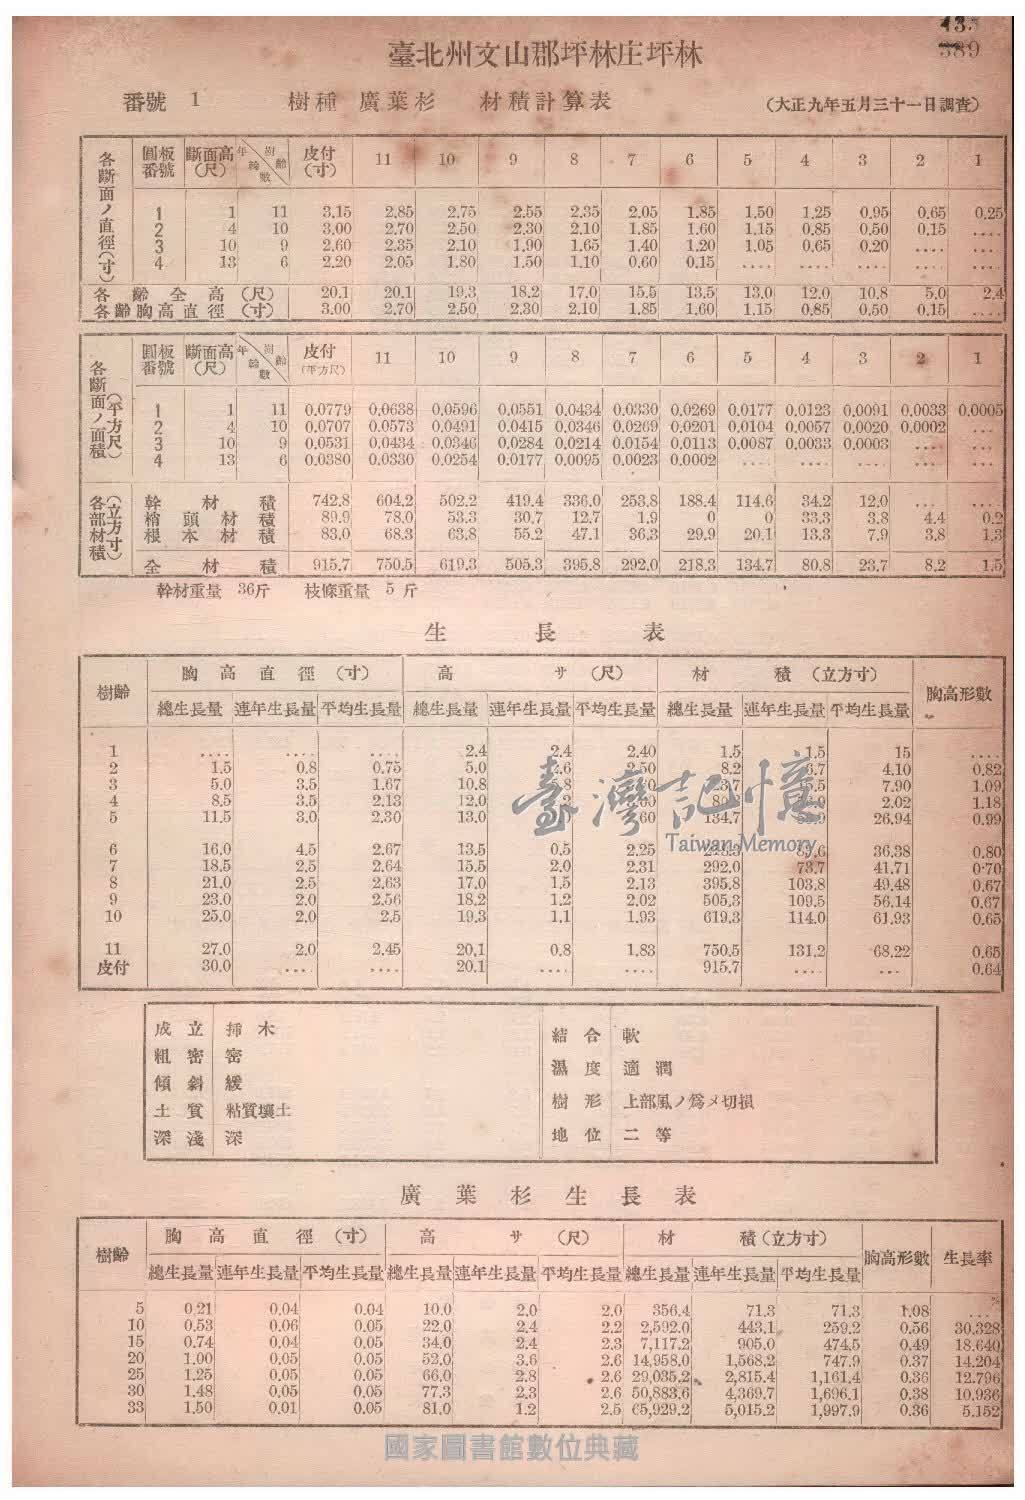 435
389
臺北州文山郡坪林庄坪林
番號 1 樹種 廣葉杉 材積計算表 (大正九年五月三十一日調查)
各斷面ノ直徑(寸) 圓板番號 斷面高(尺) 樹齡 年輪數 皮付(寸) 11 10 9 8 7 6 5 4 3 2 1
1 1 11 3.15 2.85 2.75 2.55 2.35 2.05 1.85 1.50 1.25 0.95 0.65 0.25
2 4 10 3.00 2.70 2.50 2.30 2.10 1.85 1.60 1.15 0.85 0.50 0.15 ....
3 10 9 2.60 2.35 2.10 1.90 1.65 1.40 1.20 1.05 0.65 0.20 .... ....
4 13 6 2.20 2.05 1.80 1.50 1.10 0.60 0.15 .... .... .... .... ....
各齡全高(尺) 20.1 20.1 19.3 18.2 17.0 15.5 13.5 13.0 12.0 10.8 5.0 2.4
各齡胸高直徑(寸) 3.00 2.70 2.50 2.30 2.10 1.85 1.60 1.15 0.85 0.50 0.15 ....
各斷面ノ面積(平方尺) 圓板番號 斷面高(尺) 樹齡 年輪數 皮付(平方尺) 11 10 9 8 7 6 5 4 3 2 1
1 1 11 0.0779 0.0638 0.0596 0.0551 0.0434 0.0330 0.0269 0.0177 0.0123 0.0091 0.0033 0.0005
2 4 10 0.0707 0.0573 0.0491 0.0415 0.0346 0.0269 0.0201 0.0104 0.0057 0.0020 0.0002 ...
3 10 9 0.0531 0.0434 0.0346 0.0284 0.0214 0.0154 0.0113 0.0087 0.0033 0.0003 .... ...
4 13 6 0.0380 0.0330 0.0254 0.0177 0.0095 0.0023 0.0002 .... .... .... .... ....
各部材積(立方寸) 幹材積 742.8 604.2 502.2 419.4 336.0 253.8 188.4 114.6 34.2 12.0 ... ....
梢頭材積 89.9 78.0 53.3 30.7 12.7 1.9 0 0 33.3 3.8 4.4 0.2
根本材積 83.0 68.3 63.8 55.2 47.1 36.3 29.9 20.1 13.3 7.9 3.8 1.3
全材積 915.7 750.5 619.3 505.3 395.8 292.0 218.3 134.7 80.8 23.7 8.2 1.5
幹材重量 36斤 枝條重量 5斤
生長表
樹齡 胸高直徑(寸) 高サ(尺) 材積(立方寸) 胸高形數
總生長量 連年生長量 平均生長量 總生長量 連年生長量 平均生長量 總生長量 連年生長量 平均生長量
1 .... .... .... 2.4 2.4 2.40 1.5 1.5 15 ....
2 1.5 0.8 0.75 5.0 2.6 2.50 8.2 6.7 4.10 0.82
3 5.0 3.5 1.67 10.8 7.90 1.09
4 8.5 3.5 2.13 12.0 2.02 1.18
5 11.5 3.0 2.30 13.0 134.7 26.94 0.99
6 16.0 4.5 2.67 13.5 0.5 2.25 36.38 0.80
7 18.5 2.5 2.64 15.5 2.0 2.31 292.0 73.7 41.71 0.70
8 21.0 2.5 2.63 17.0 1.5 2.13 395.8 103.8 49.48 0.67
9 23.0 2.0 2.56 18.2 1.2 2.02 505.3 109.5 56.14 0.67
10 25.0 2.0 2.5 19.3 1.1 1.93 619.3 114.0 61.93 0.65
11 27.0 2.0 2.45 20.1 0.8 1.83 750.5 131.2 68.22 0.65
皮付 30.0 .... .... 20.1 .... .... 915.7 .... ... 0.64
臺灣記憶
Taiwan Memory
成立 揷木
粗密 密
傾斜 緩
土質 粘質壤土
深淺 深
結合 軟
濕度 適潤
樹形 上部風ノ爲メ切損
地位 二等
廣葉杉生長表
樹齡 胸高直徑(寸) 高サ(尺) 材積(立方寸) 胸高形數 生長率
總生長量 連年生長量 平均生長量 總生長量 連年生長量 平均生長量 總生長量 連年生長量 平均生長量
5 0.21 0.04 0.04 10.0 2.0 2.0 356.4 71.3 71.3 1.08 ...%
10 0.53 0.06 0.05 22.0 2.4 2.2 2,592.0 443.1 259.2 0.56 30.328
15 0.74 0.04 0.05 34.0 2.4 2.3 7,117.2 905.0 474.5 0.49 18.640
20 1.00 0.05 0.05 52.0 3.6 2.6 14,958.0 1,568.2 747.9 0.37 14.204
25 1.25 0.05 0.05 66.0 2.8 2.6 29,035.2 2,815.4 1,161.4 0.36 12.796
30 1.48 0.05 0.05 77.3 2.3 2.6 50,883.6 4,369.7 1,696.1 0.38 10.936
33 1.50 0.01 0.05 81.0 1.2 2.5 65,929.2 5,015.2 1,997.9 0.36 5.152
國家圖書館數位典藏